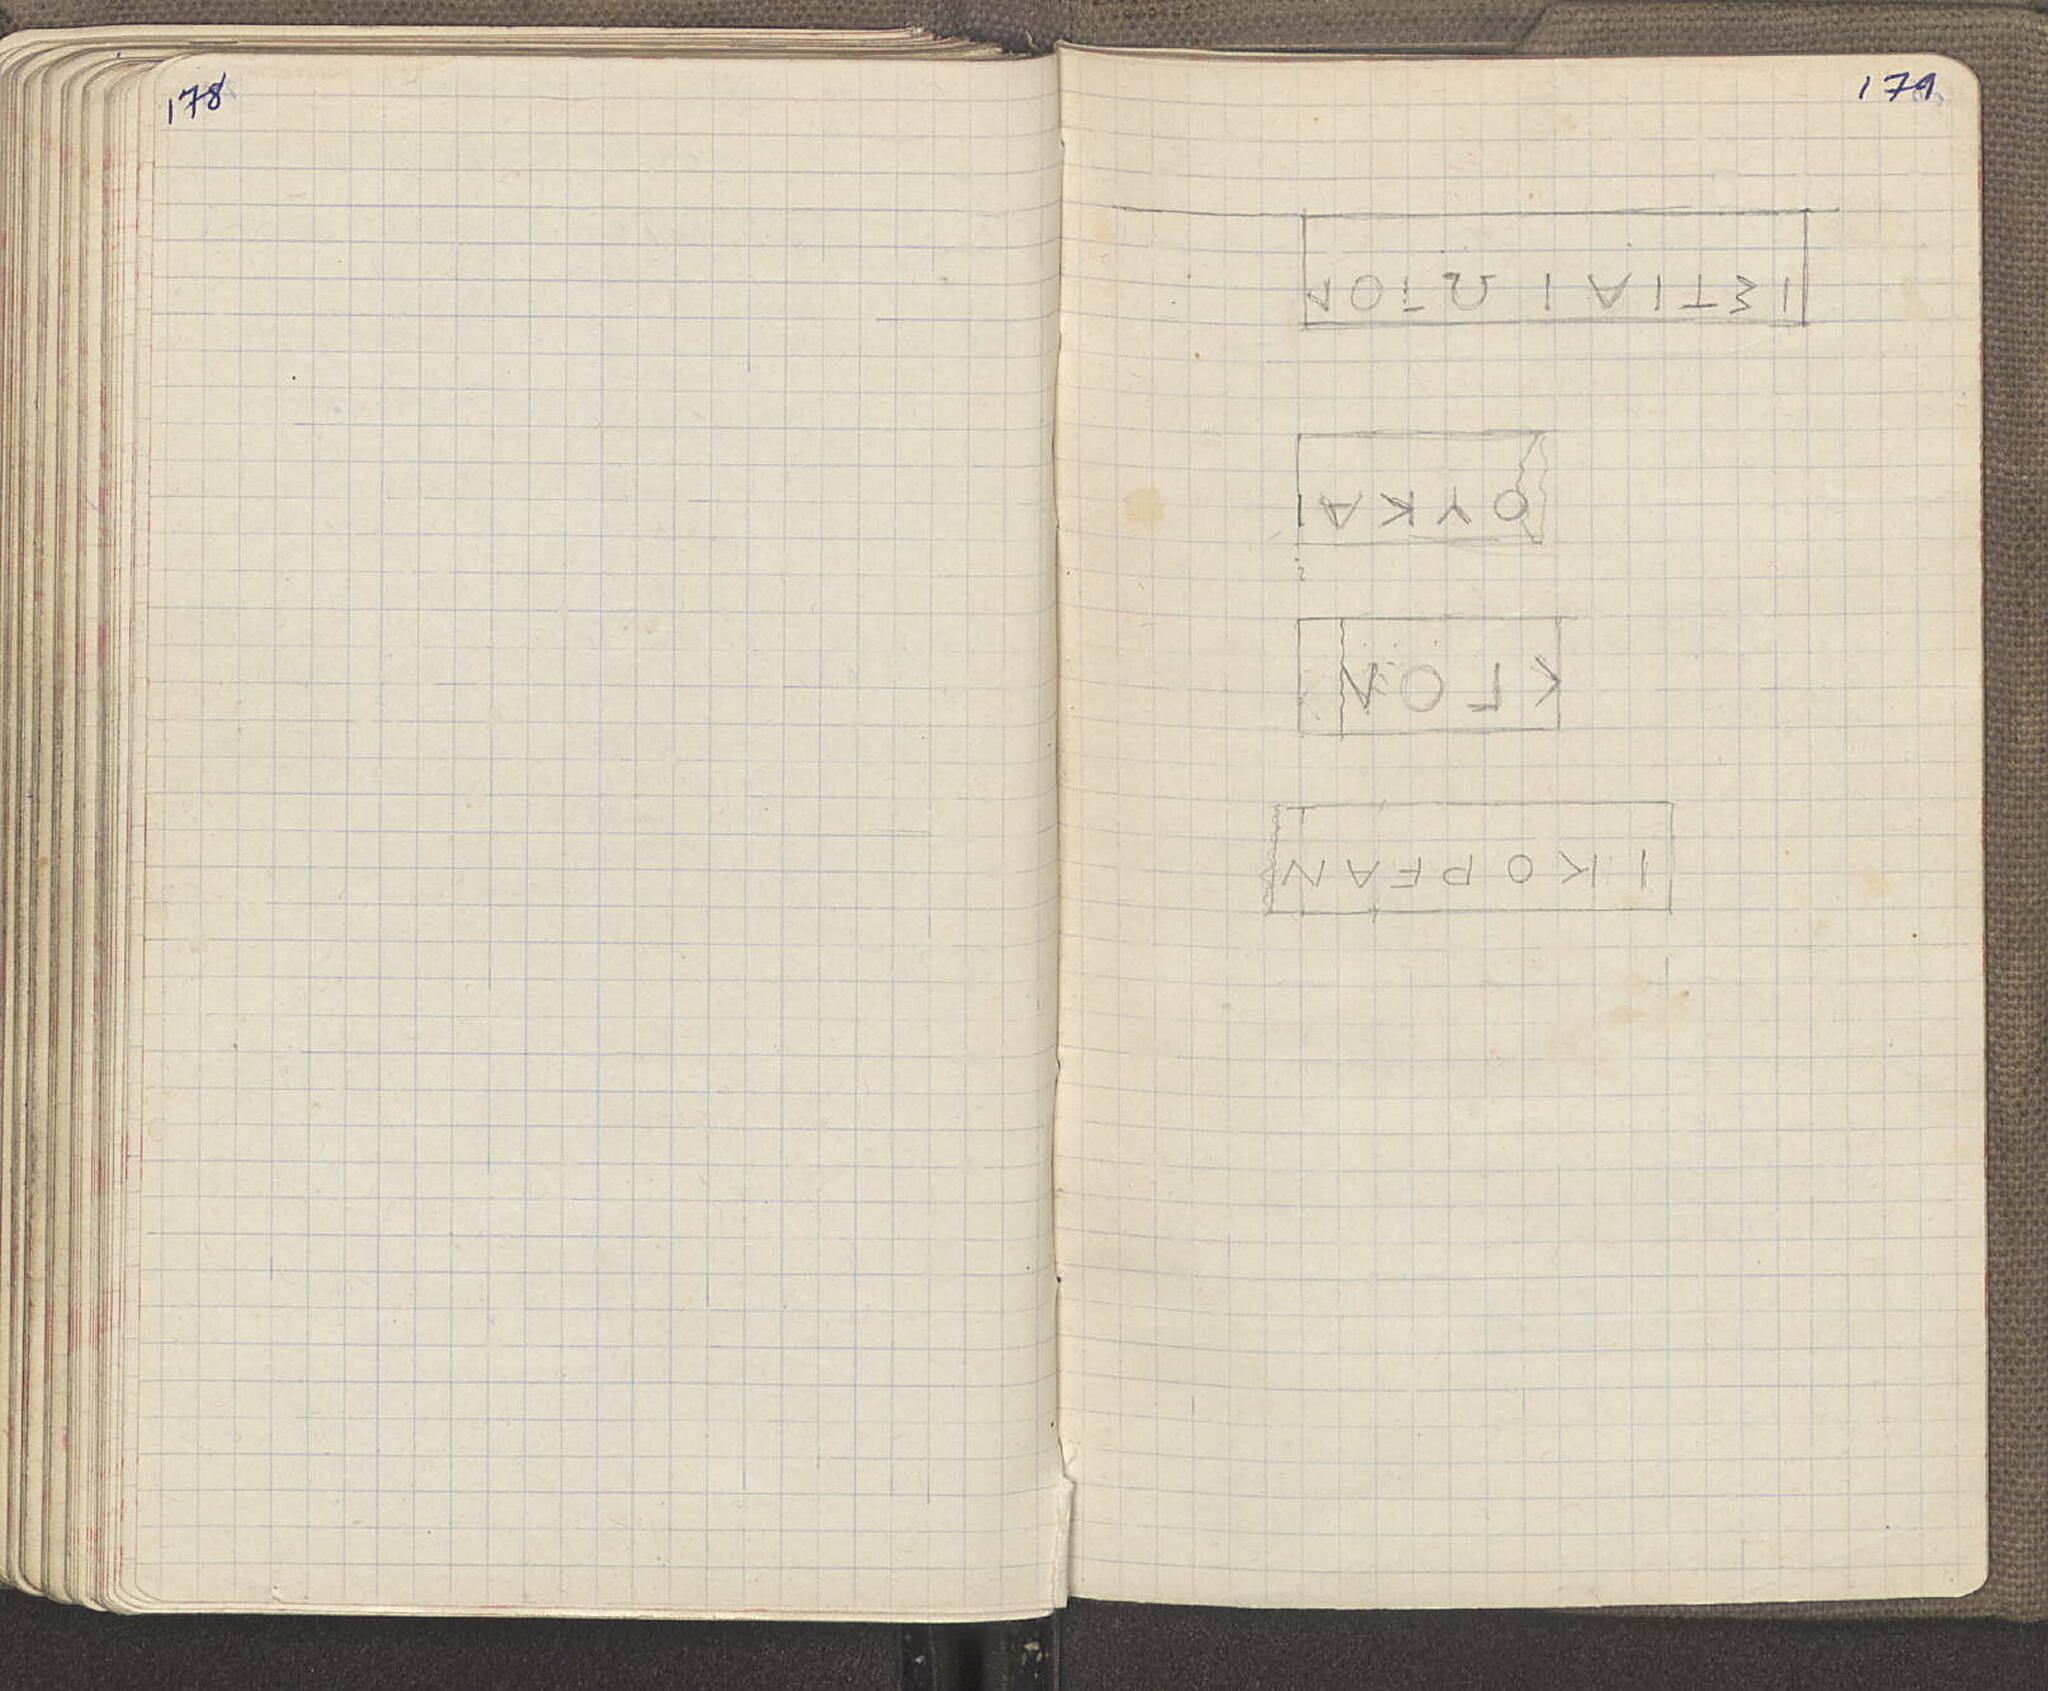 178
179
ΙΣΤΙΑΙΩΤΟΝ
ΟΥΚΑΙ
?
ΚΓΟΝ
ΙΚΟΡFΑΝ